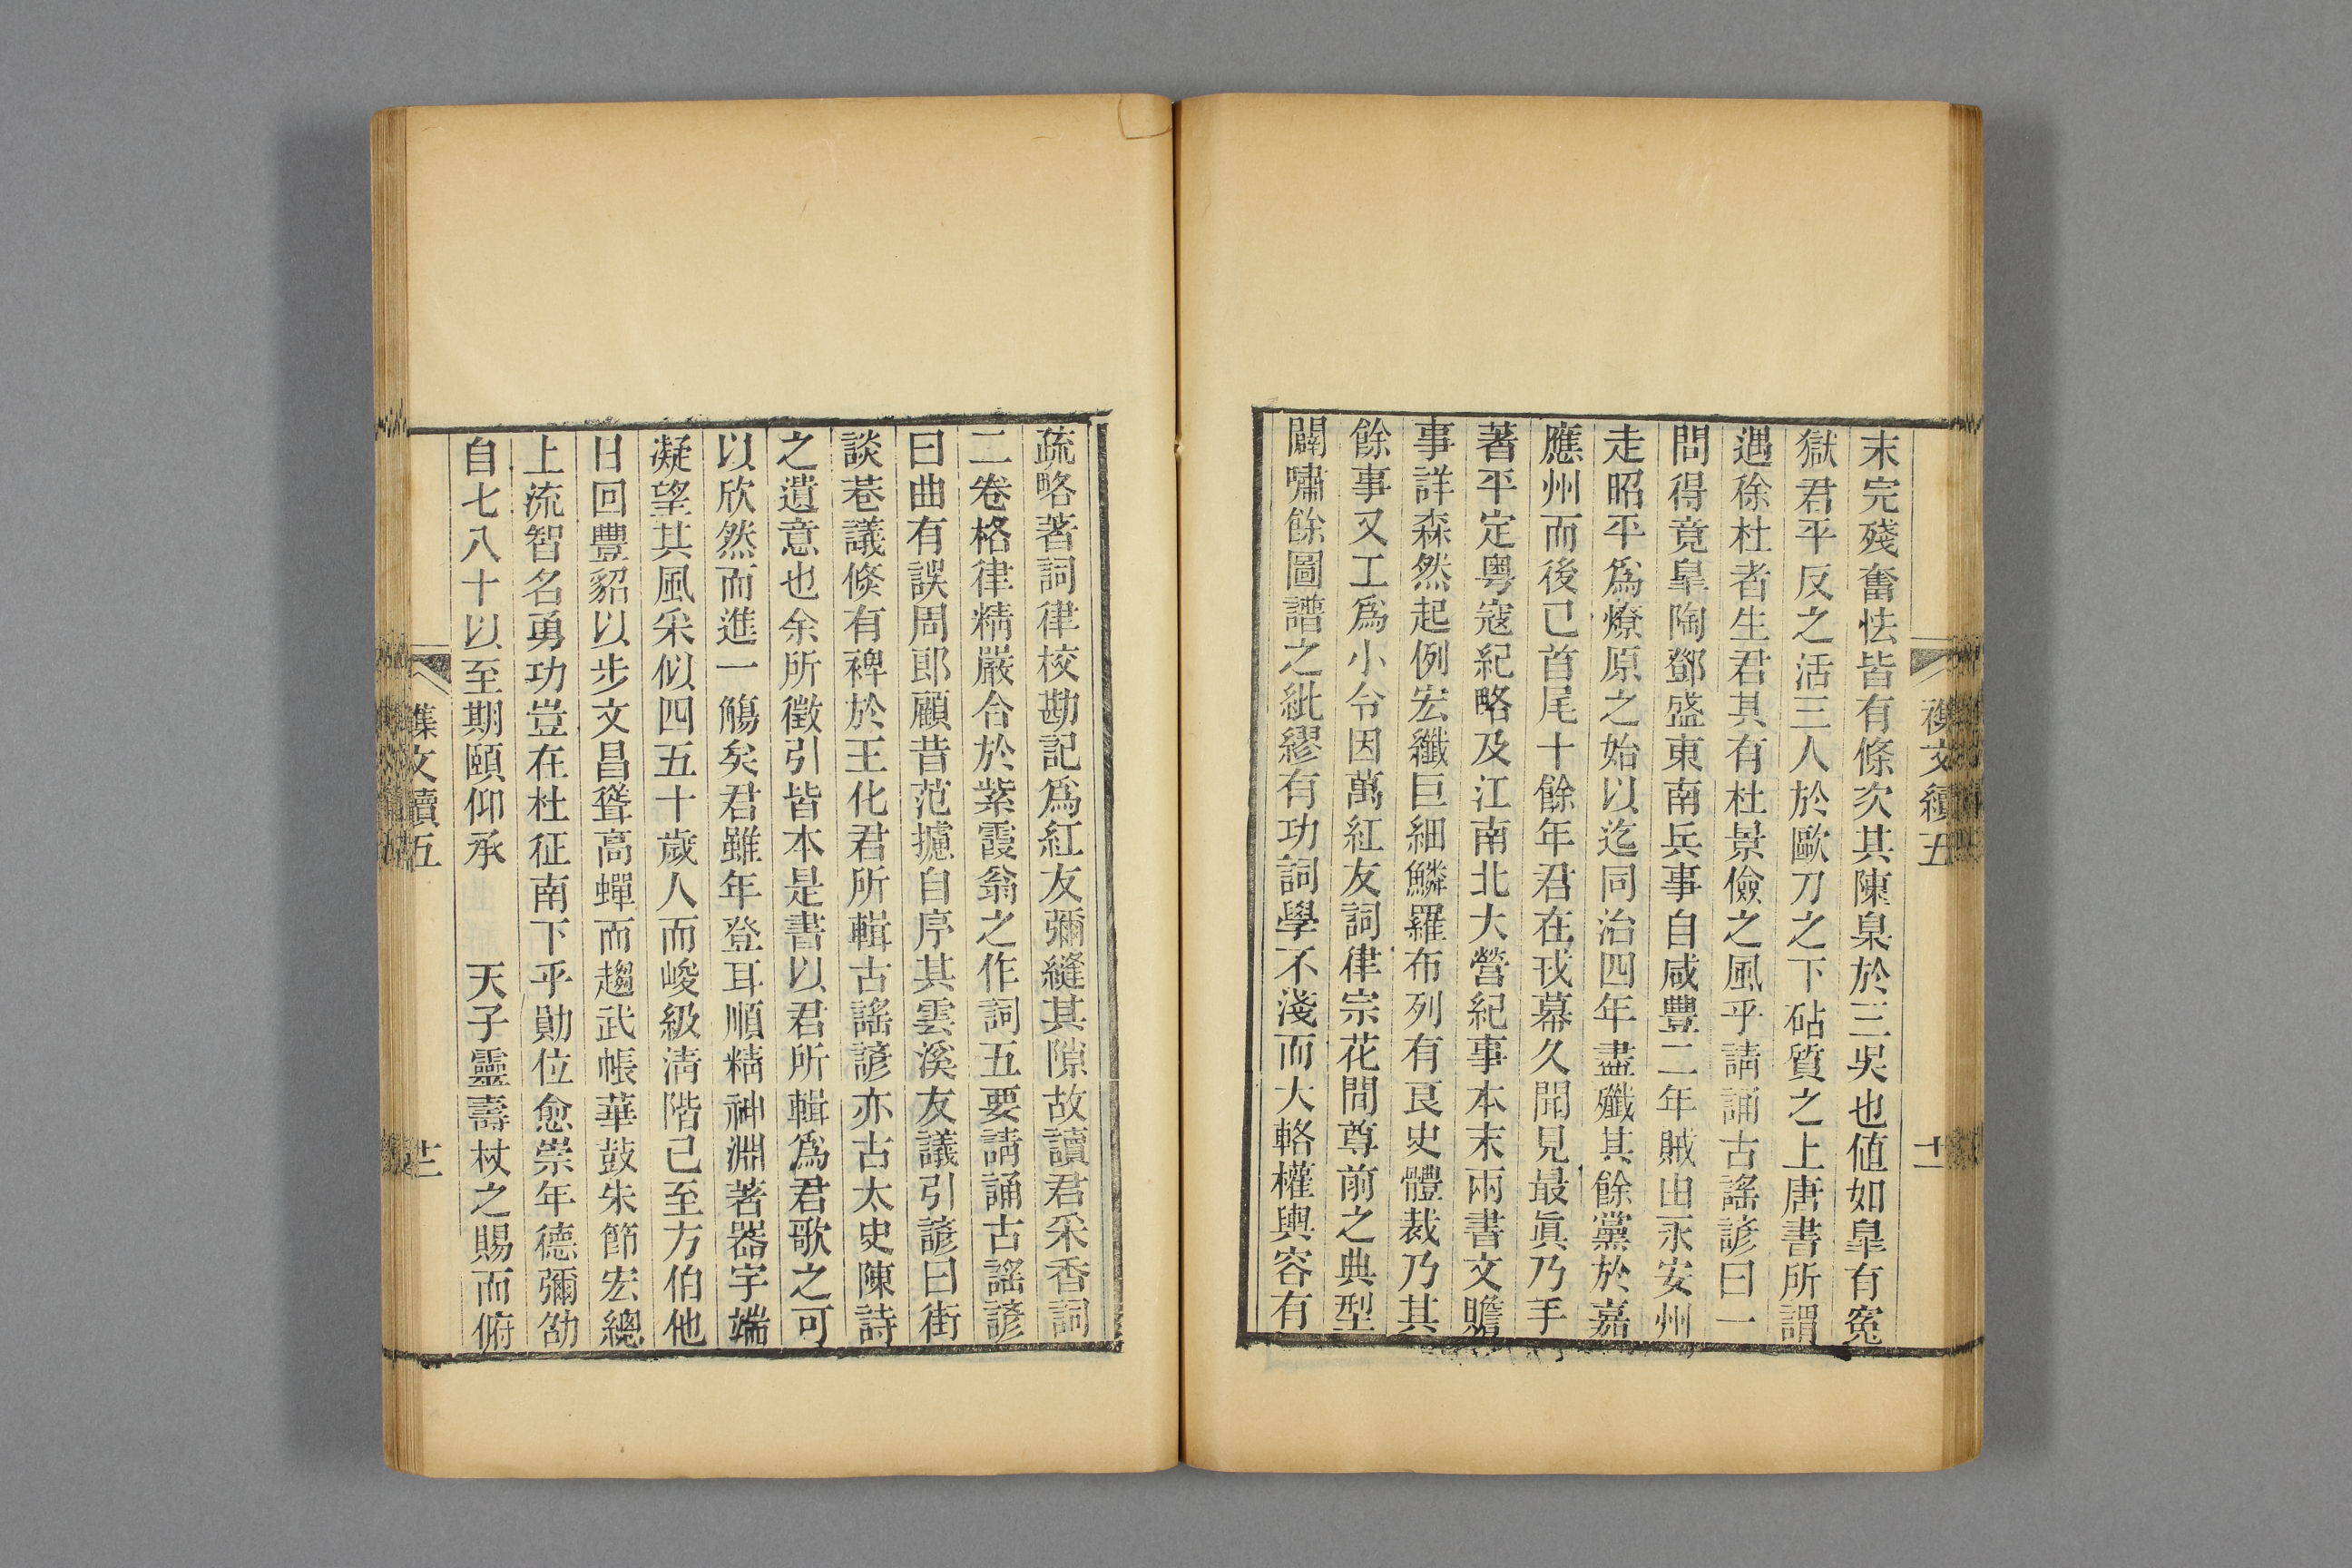 襍文續五
十一
末完殘奮怯皆有條次其陳臬於三吳也値如皐有寃
獄君平反之活三人於歐刀之下砧質之上唐書所謂
遇徐杜者生君其有杜景儉之風乎請誦古謠諺曰一
問得竟皐陶鄧盛東南兵事自咸豐二年賊由永安州
走昭平爲燎原之始以迄同治四年盡殲其餘黨於嘉
應州而後已首尾十餘年君在戎幕久聞見最眞乃手
著平定粤寇紀略及江南北大營紀事本末兩書文贍
事詳森然起例宏纖巨細鱗羅布列有良史體裁乃其
餘事又工爲小令因萬紅友詞律宗花間尊前之典型
闢嘯餘圖譜之紕繆有功詞學不淺而大輅權輿容有
疏略著詞律校勘記爲紅友彌縫其隙故讀君采香詞
二卷格律精嚴合於紫霞翁之作詞五要請誦古謠諺
曰曲有誤周郎顧昔范攄自序其雲溪友議引諺曰街
談巷議倐有裨於王化君所輯古謠諺亦古太史陳詩
之遺意也余所徵引皆本是書以君所輯爲君歌之可
以欣然而進一觴矣君雖年登耳順精神淵著器宇端
凝望其風采似四五十歲人而峻級淸階已至方伯他
日回豐貂以步文昌聳高蟬而趨武帳華鼓朱節宏總
上流智名勇功豈在杜征南下乎勛位愈崇年德彌劭
自七八十以至期頤仰承　天子靈壽杖之賜而俯
襍文續五